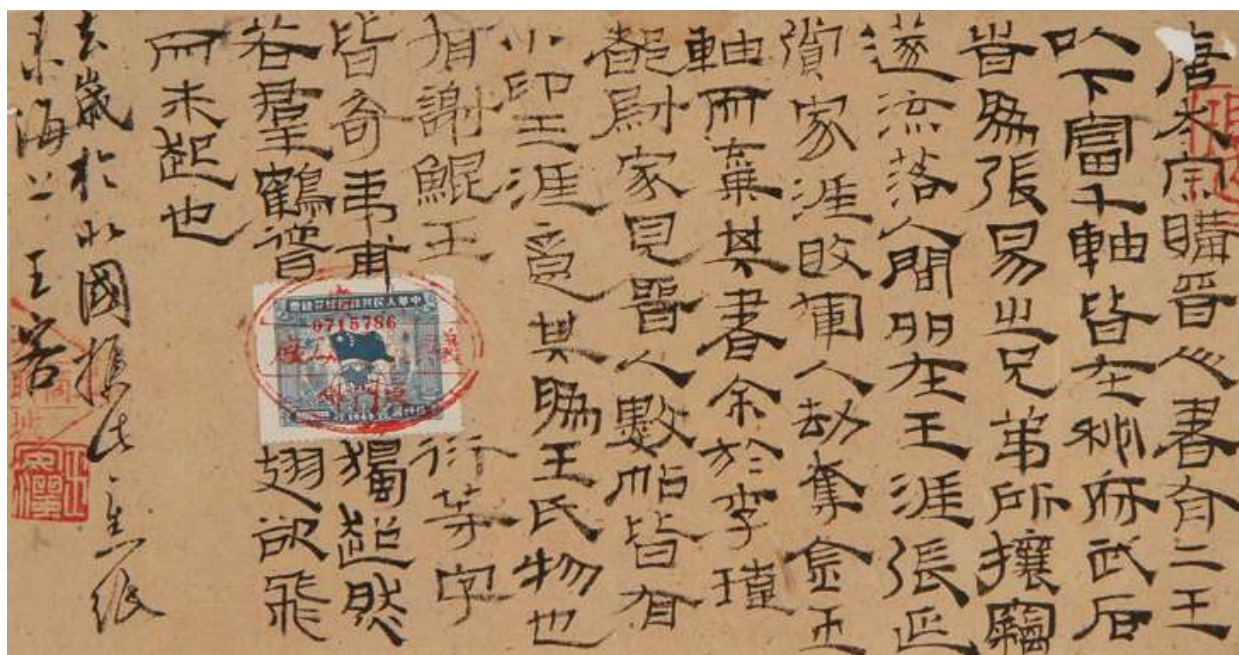 唐太宗購晉人書自二王
以下富千軸皆在秘府武后
旹為張易之兄弟所攘竊
遂流落人間多在王涯張延
賞家涯敗軍人劫奪金玉
軸而棄其書余於李瑋
都尉家見晉人數帖皆有
小印王涯意其為王氏物也
有謝鯤王衍等字
皆奇 獨超然
若群鶴聳翅欲飛
而未起也
去歲於北國攜此 紙
東海 王客
0715786
1949